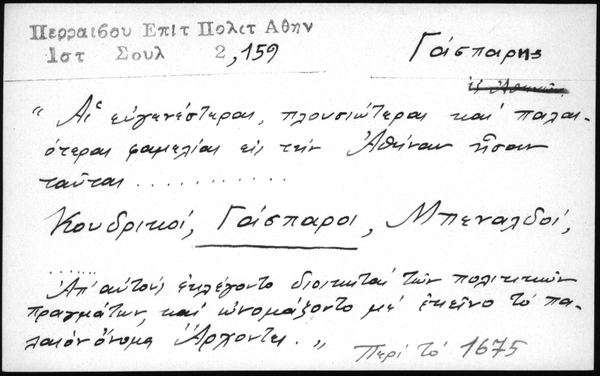 Περραιβου Επιτ Πολιτ Αθην
Ιστ Σουλ 2,159
Γάσπαρης
ἐξ Ἀθηνῶν
"Αἱ εὐγενέστεραι, πλουσιώτεραι καί παλαι-
ότεραι φαμελίαι εἰς τήν Ἀθήναν ἦσαν
ταῦται ............
Κουδρικοί, Γάσπαροι, Μπεναλδοί,
......
Ἀπ' αὐτούς ἐκλέγοντο διοικηταί τῶν πολιτικῶν
πραγμάτων, καί ὠνομάζοντο μέ ἐκεῖνο τό πα-
λαιόν ὄνομα Ἄρχοντες."
Περί τό 1675